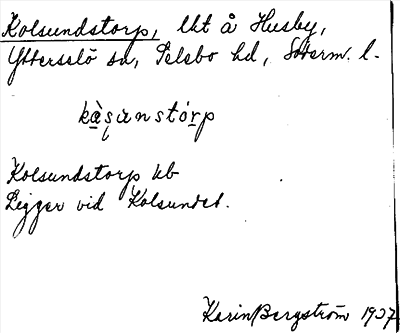 Kolsundstorp, lht å Husby,
Ytterselö sn, Selebo hd, Söderm. l.
kàșunstórp
Kolsundstorp kb
Ligger vid Kolsundet.
Karin Bergström 1937